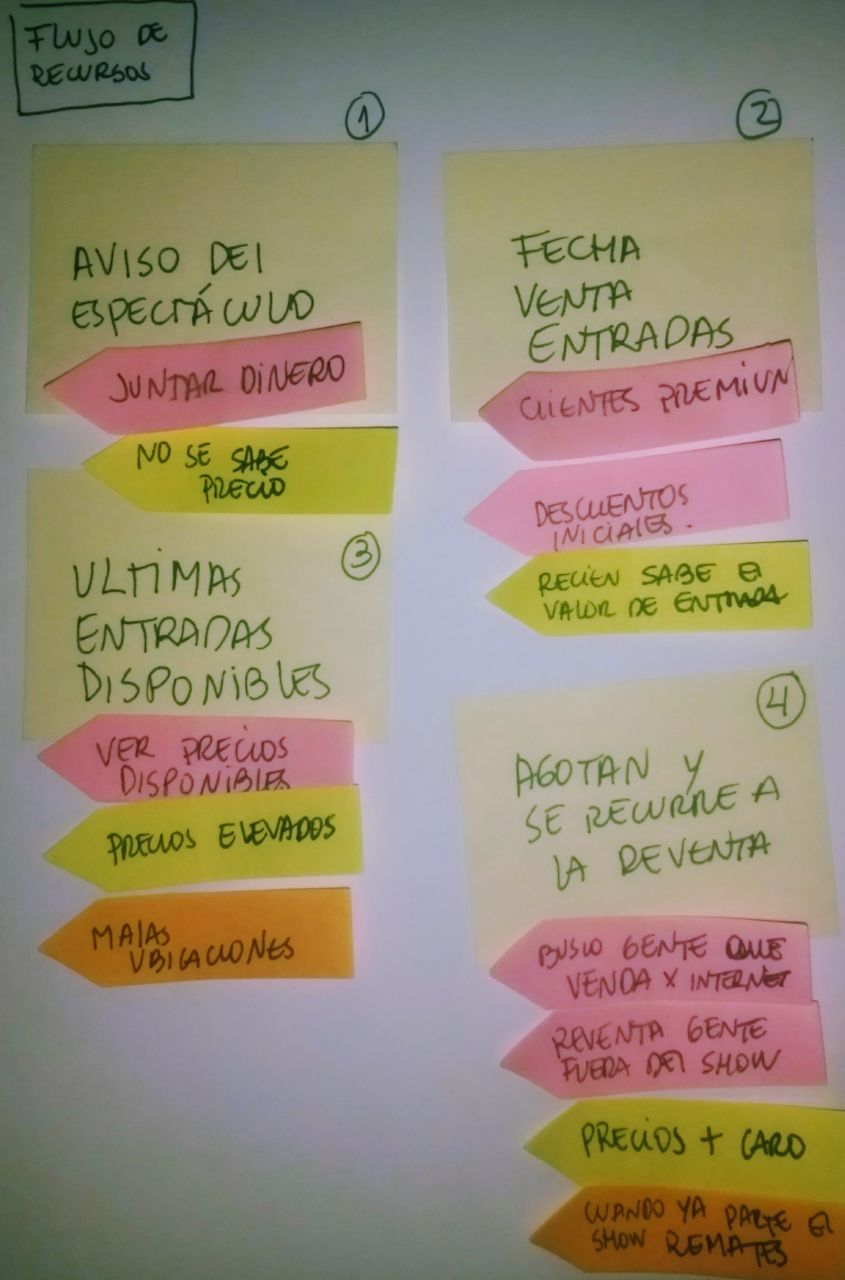 FLUJO DE
RECURSOS
1
AVISO DEl
ESPECTÁCULO
JUNTAR DINERO
NO SE SABE
PRECIO
2
FECHA
VENTA
ENTRADAS
CLIENTES PREMIUN
DESCUENTOS
INICIALES.
RECIEN SABE El
VALOR DE ENTRADA
3
ULTIMAS
ENTRADAS
DISPONIBLES
VER PRECIOS
DISPONIBLES
PRECIOS ELEVADOS
MALAS
UBICACIONES
4
AGOTAN Y
SE RECURRE A
LA REVENTA
BUSCO GENTE QUE
VENDA X INTERNET
REVENTA GENTE
FUERA DEl SHOW
PRECIOS + CARO
CUANDO YA PARTE El
SHOW REMATES